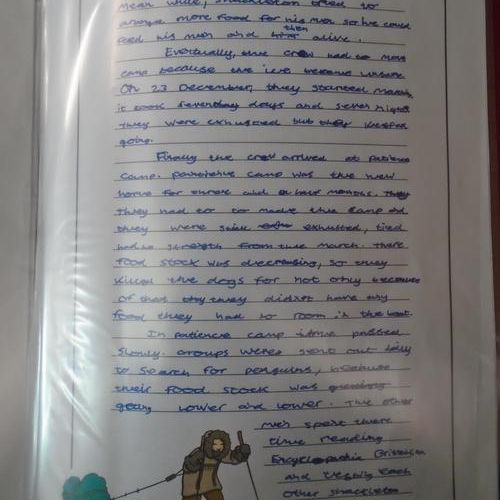 mean while, Shackleton tried to
arange more food for his men so he could
feed his men and them alive.
Eventually, the crew had to move
camp because the ice became unsafe
On 23 December, they started March,
it took seven days and seven nights
they were exhusted but they keeped
going.
Finally the crew arrived at patience
camp. patience camp was the new
home for three and a half months. They
They had to to made the camp and
they were sick exhusted, tired
had no strength from the march. There
food stock was decreasing, so they
killed the dogs for not only because
of that they didn't have any
food they had to room in the boat.
In patience camp time passed
slowly. Groups were sent out daily
to search for penguins, because
their food stock was
getting lower and lower. The other
men spent there
time reading
Encyclopedia Britannica
and each
other Shackleton